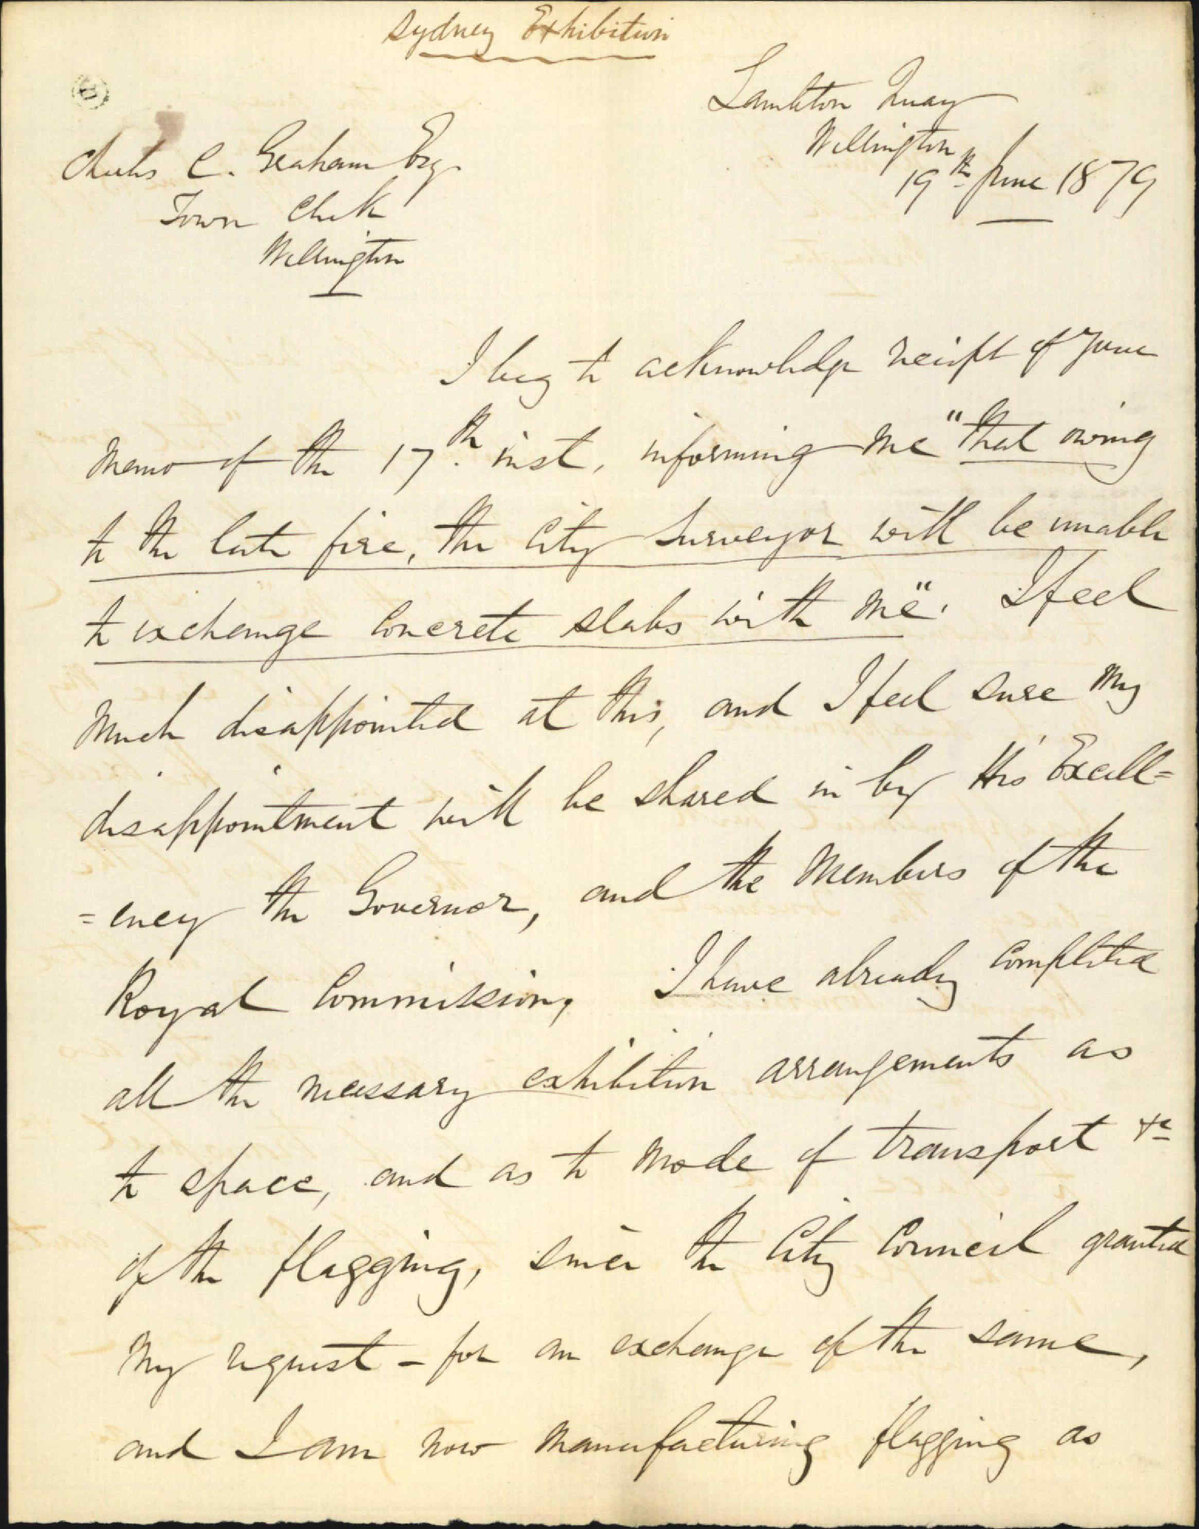 Sydney Exhibition
Lambton Quay
Wellington
19th June 1879
Charles C. Graham Esq.
Town Clerk
Wellington
I beg to acknowledge receipt of your
memo of the 17th. inst, informing me "that owing
to the late fire, the City Surveyor will be unable
to exchange concrete slabs with me". I feel
much disappointed at this, and I feel sure my
disappointment will be shared in by His Excell=
=ency the Governor, and the Members of the
Royal Commission. I have already completed
all the necessary exhibition arrangements as
to space, and as to mode of transport &c
of the flagging, since the City Council granted
my request - for an exchange of the same,
and I am now manufacturing flagging as